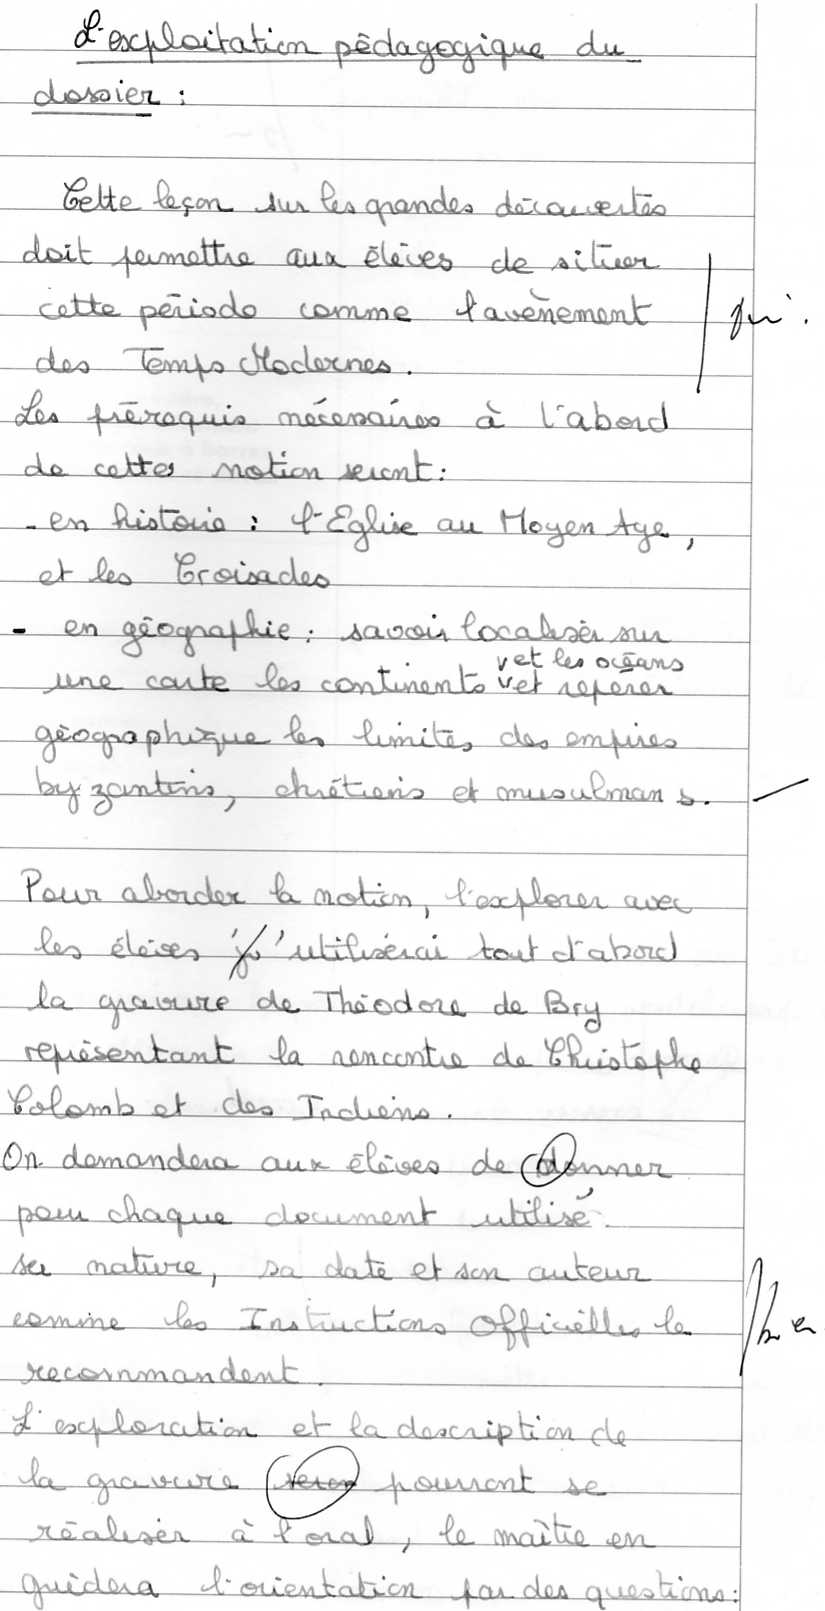 L'exploitation pédagogique du
dossier :
Cette leçon sur les grandes découvertes
doit permettre aux élèves de situer
cette période comme l'avènement
des Temps Modernes.
Les prérequis nécessaires à l'abord
de cettes notion seront :
- en histoire : l'Eglise au Moyen Age,
et les Croisades
- en géographie : savoir localiser sur
et les océans
une carte les continents et repérer
géographique les limites des empires
byzantins, chrétiens et musulmans.
Pour aborder la notion, l'explorer avec
les élèves j'utiliserai tout d'abord
la gravure de Théodore de Bry
représentant la rencontre de Christophe
Colomb et des Indiens.
On demandera aux élèves de donner
pour chaque document utilisé
sa nature, sa date et son auteur
comme les Instructions Officielles le
recommandent.
L'exploration et la description de
la gravure pourront se
réaliser à l'oral, le maître en
guidera l'orientation par des questions :